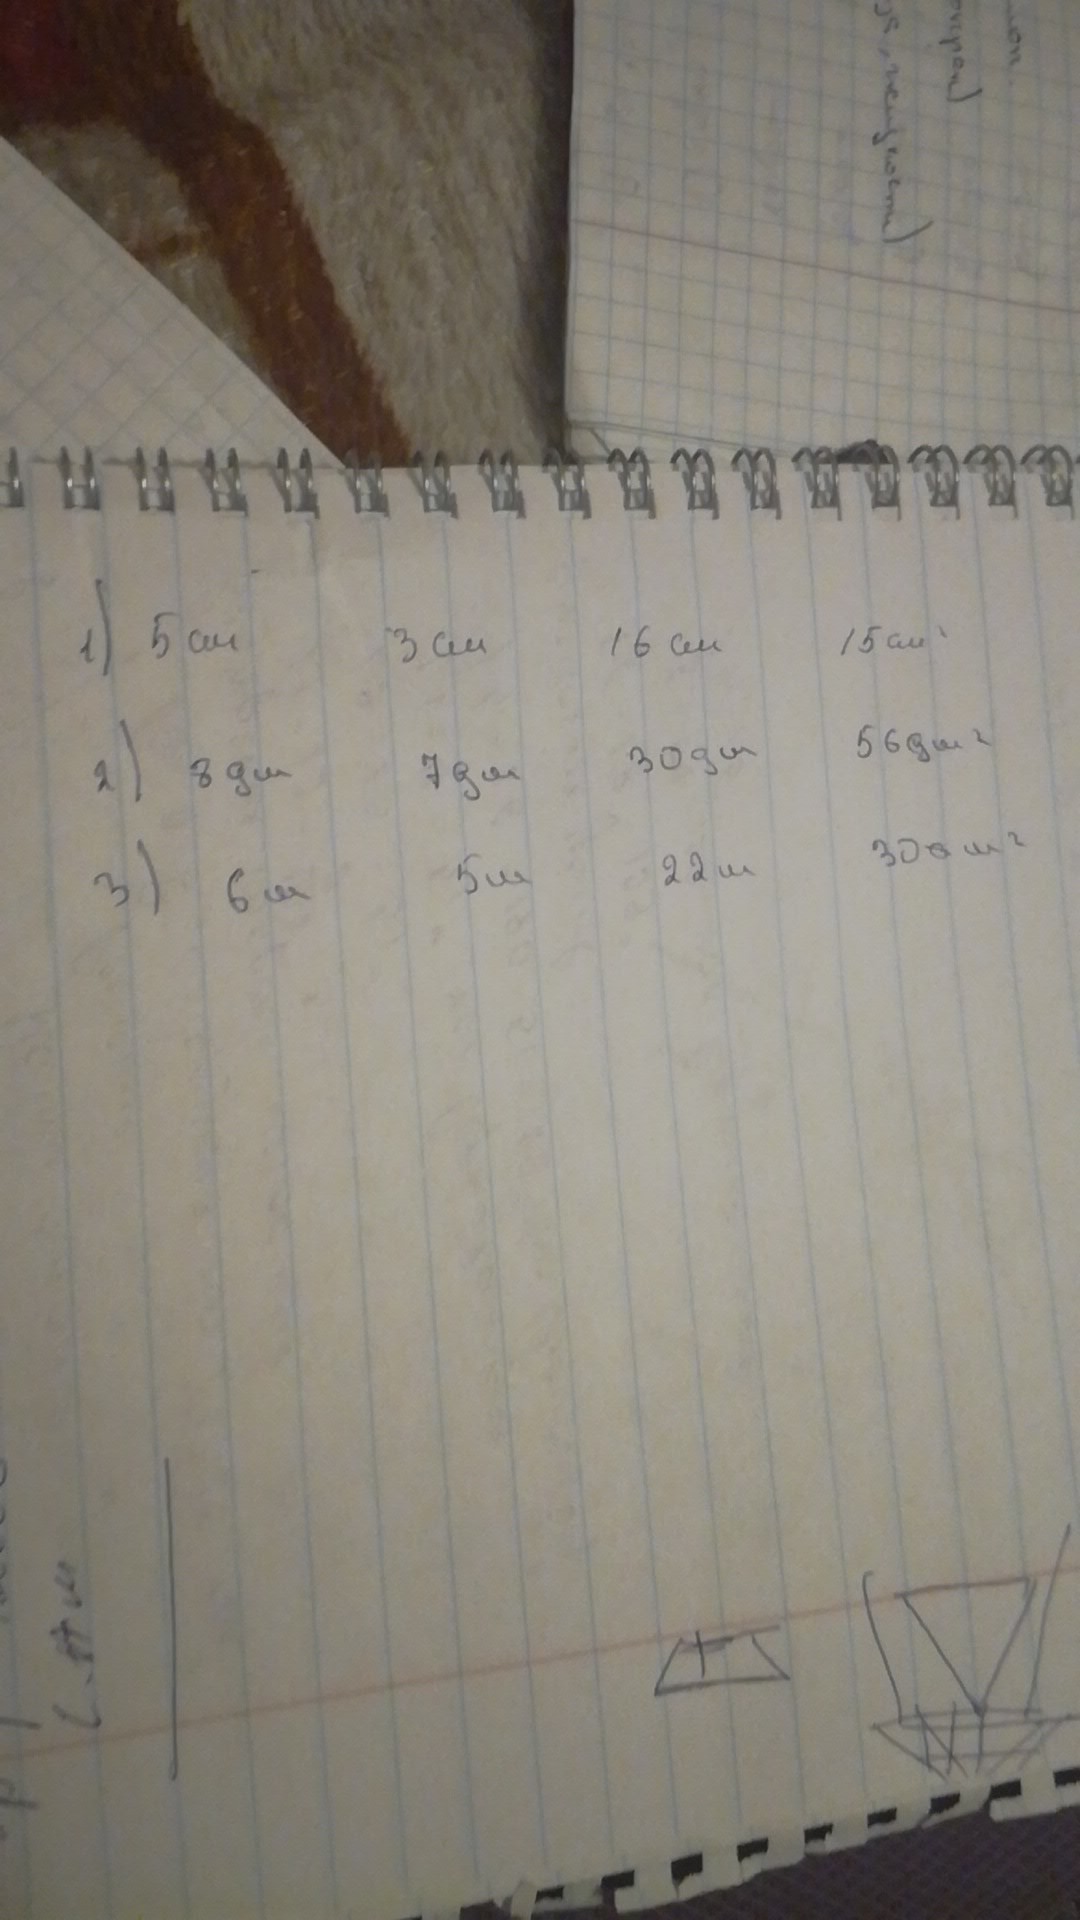 1) 5 см 3 см 16 см 15 см²
2) 8 дм 7 дм 30 дм 56 дм²
3) 6 м 5 м 22 м 30 м²